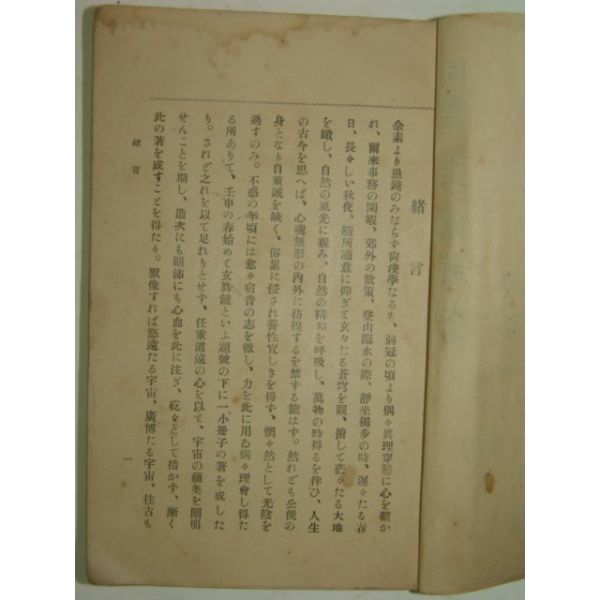 緒言
余素より愚鈍のみならず尚凌學なるも、弱冠の頃より偶々眞理穿鑿に心を繋か
れ、爾來事務の閑暇、郊外の散策、登山臨水の際、靜坐獨步の時、遲々たる春
日、長々しい秋夜、隨所隨意に仰ぎて玄々たる蒼穹を觀、俯して茫々たる大地
を瞰し、自然の風光に親み、自然の精和を呼吸し、萬物の時得るを伴ひ、人生
の古今を思へば、心魂無形の內外に彷徨するを禁する能はず。然れども公僕の
身となり自重誠を缺く、俗累に侵され養性宜しきを得ず、惘々然として光陰を
過すのみ。不惑の年頃には愈々宿昔の志を勵し、力を此に用ゐ偶々理會し得た
る所ありて、壬申の春始めて玄眞鏡といふ題號の下に一小册子の著を成した
り。されど之れを以て足れりとせず、任重道遠の心を以て、宇宙の蘊奧を闡明
せんことを期し、造次にも顚沛にも心血を此に注ぎ、矻々として措かず、漸く
此の著を成すことを得たり。默像すれば悠遠たる宇宙、廣博たる宇宙、往古も
緒言
一